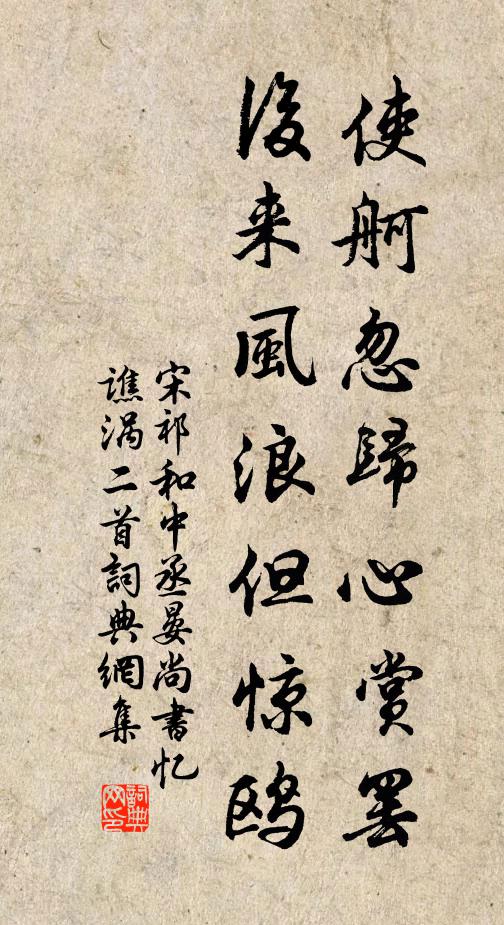 使舸忽歸心赏罢
後来風浪但惊鸥
宋祁和中丞晏尚書忆
谯涡二首詞典網集
詞典
网印